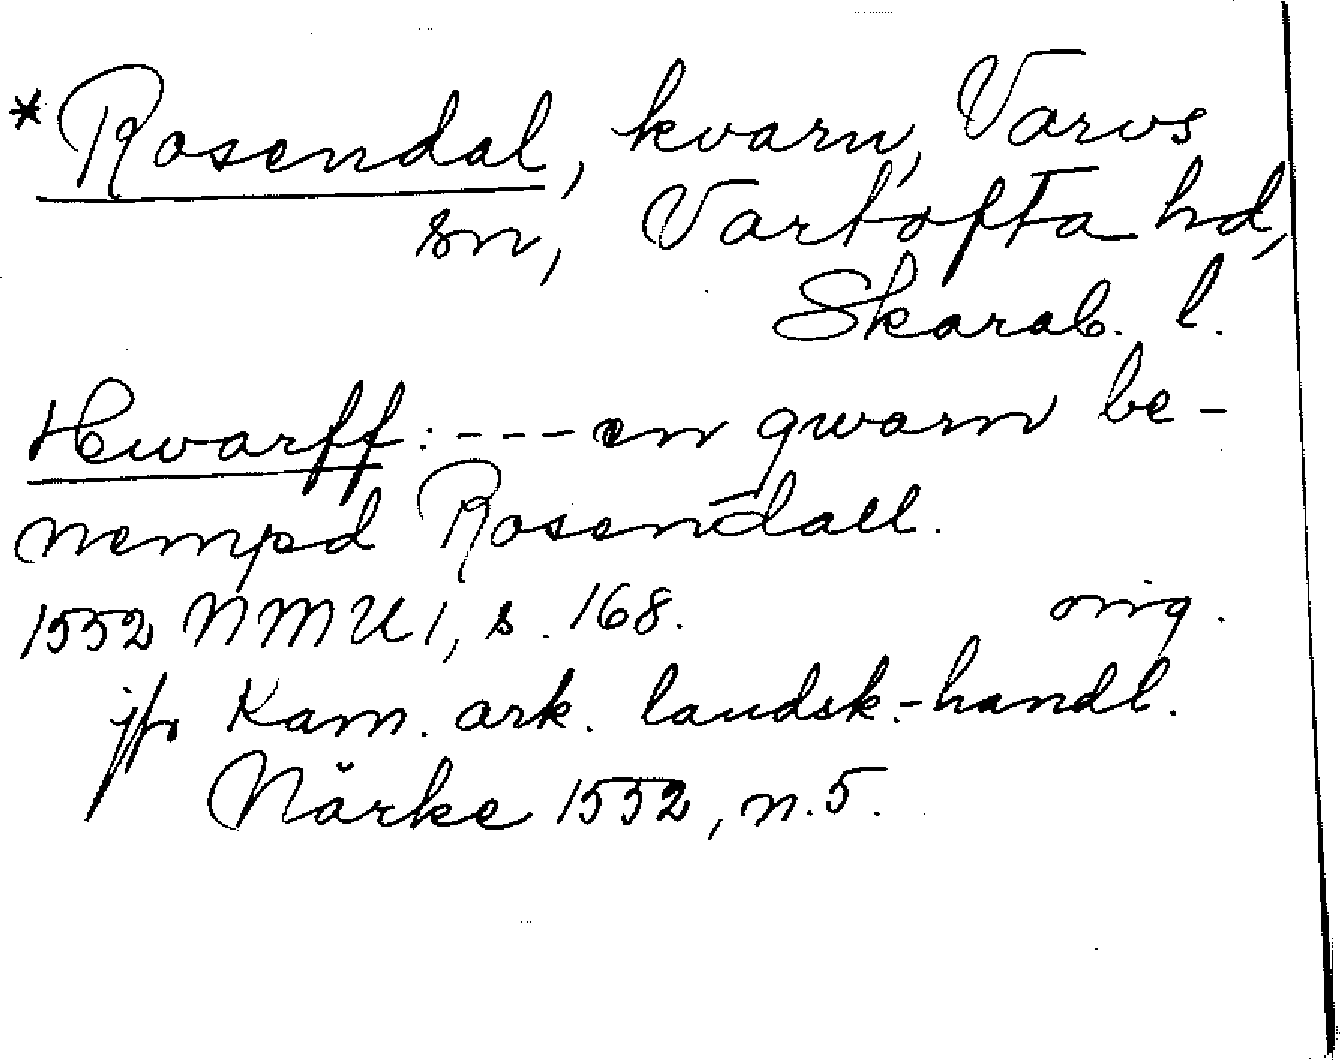 *Rosendal, kvarn, Varvs
sn, Vartofta hd,
Skarab. l.
Hwarff: --- en qwarn be-
nempd Rosendall.
1552 NMU 1, s. 168. orig.
jfr Kam. ark. landsk.-handl.
Närke 1552, n. 5.